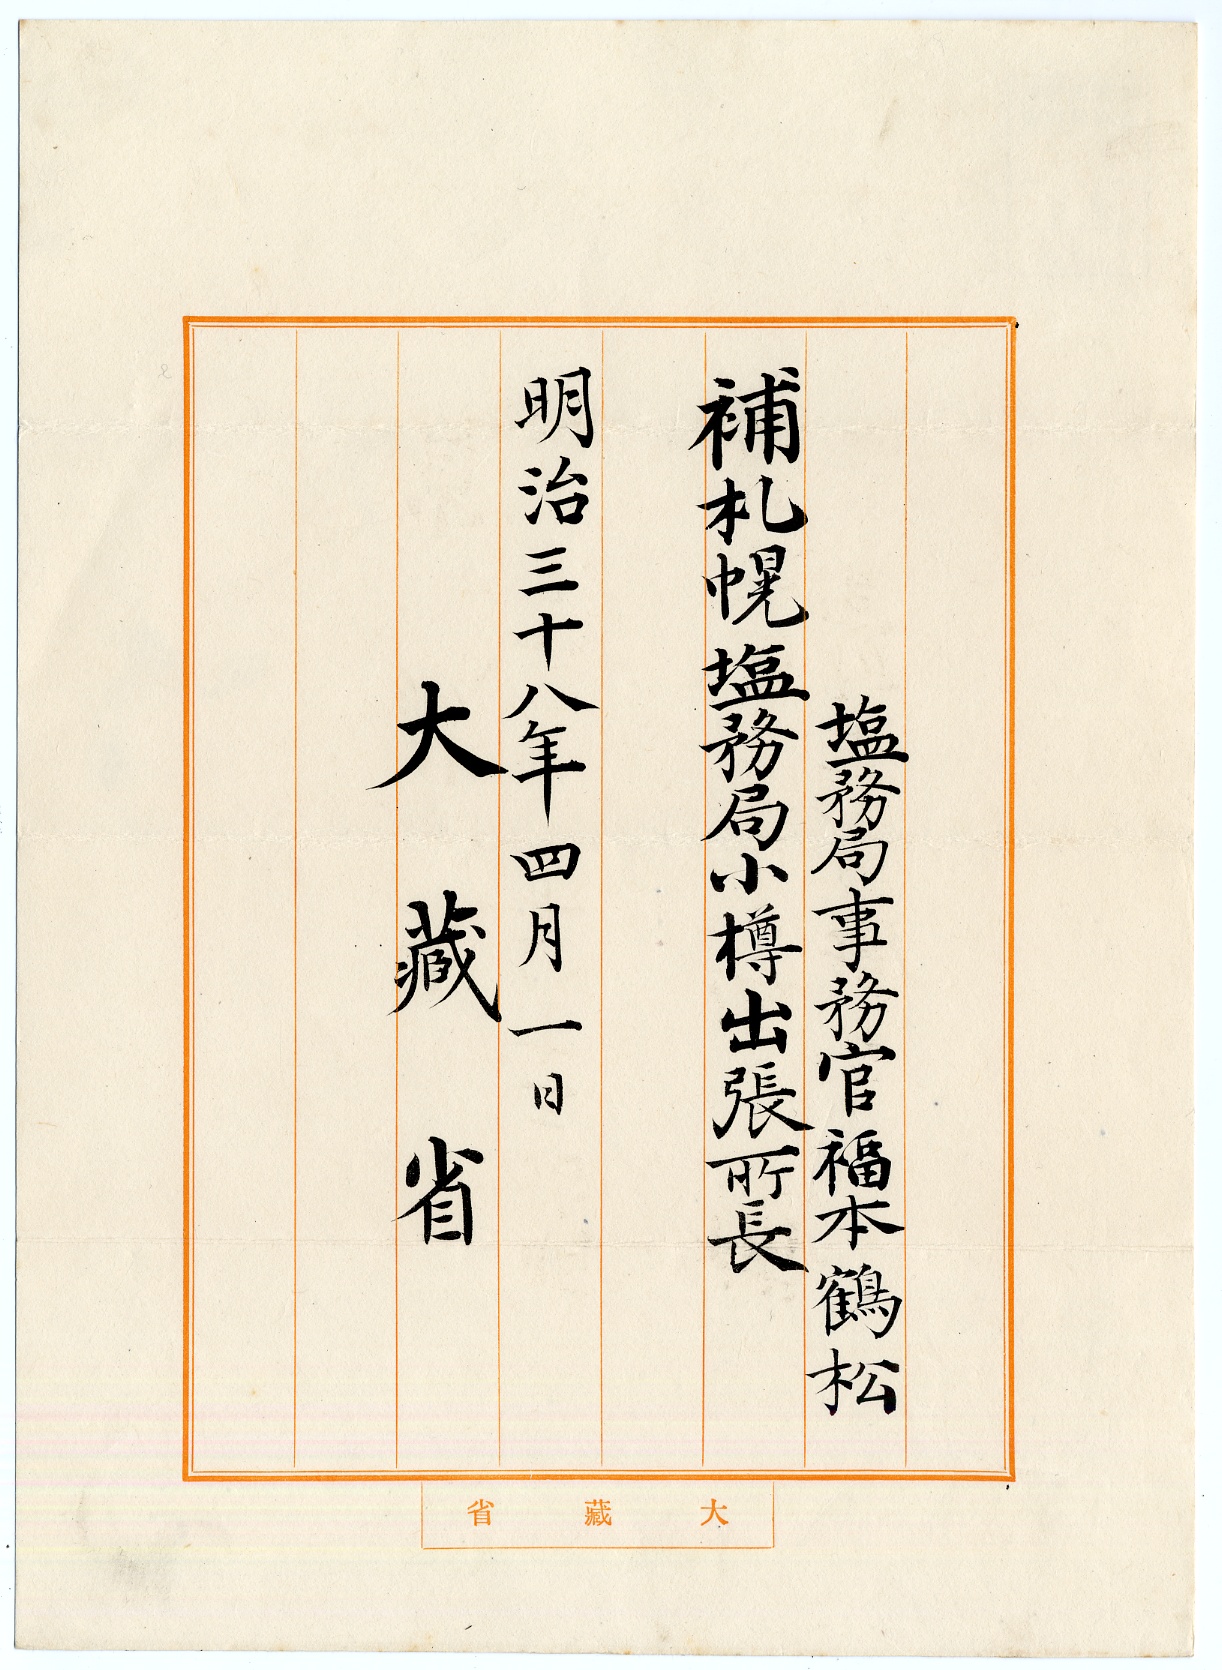 塩務局事務官福本鶴松
補札幌塩務局小樽出張所長
明治三十八年四月一日
大藏省
大藏省